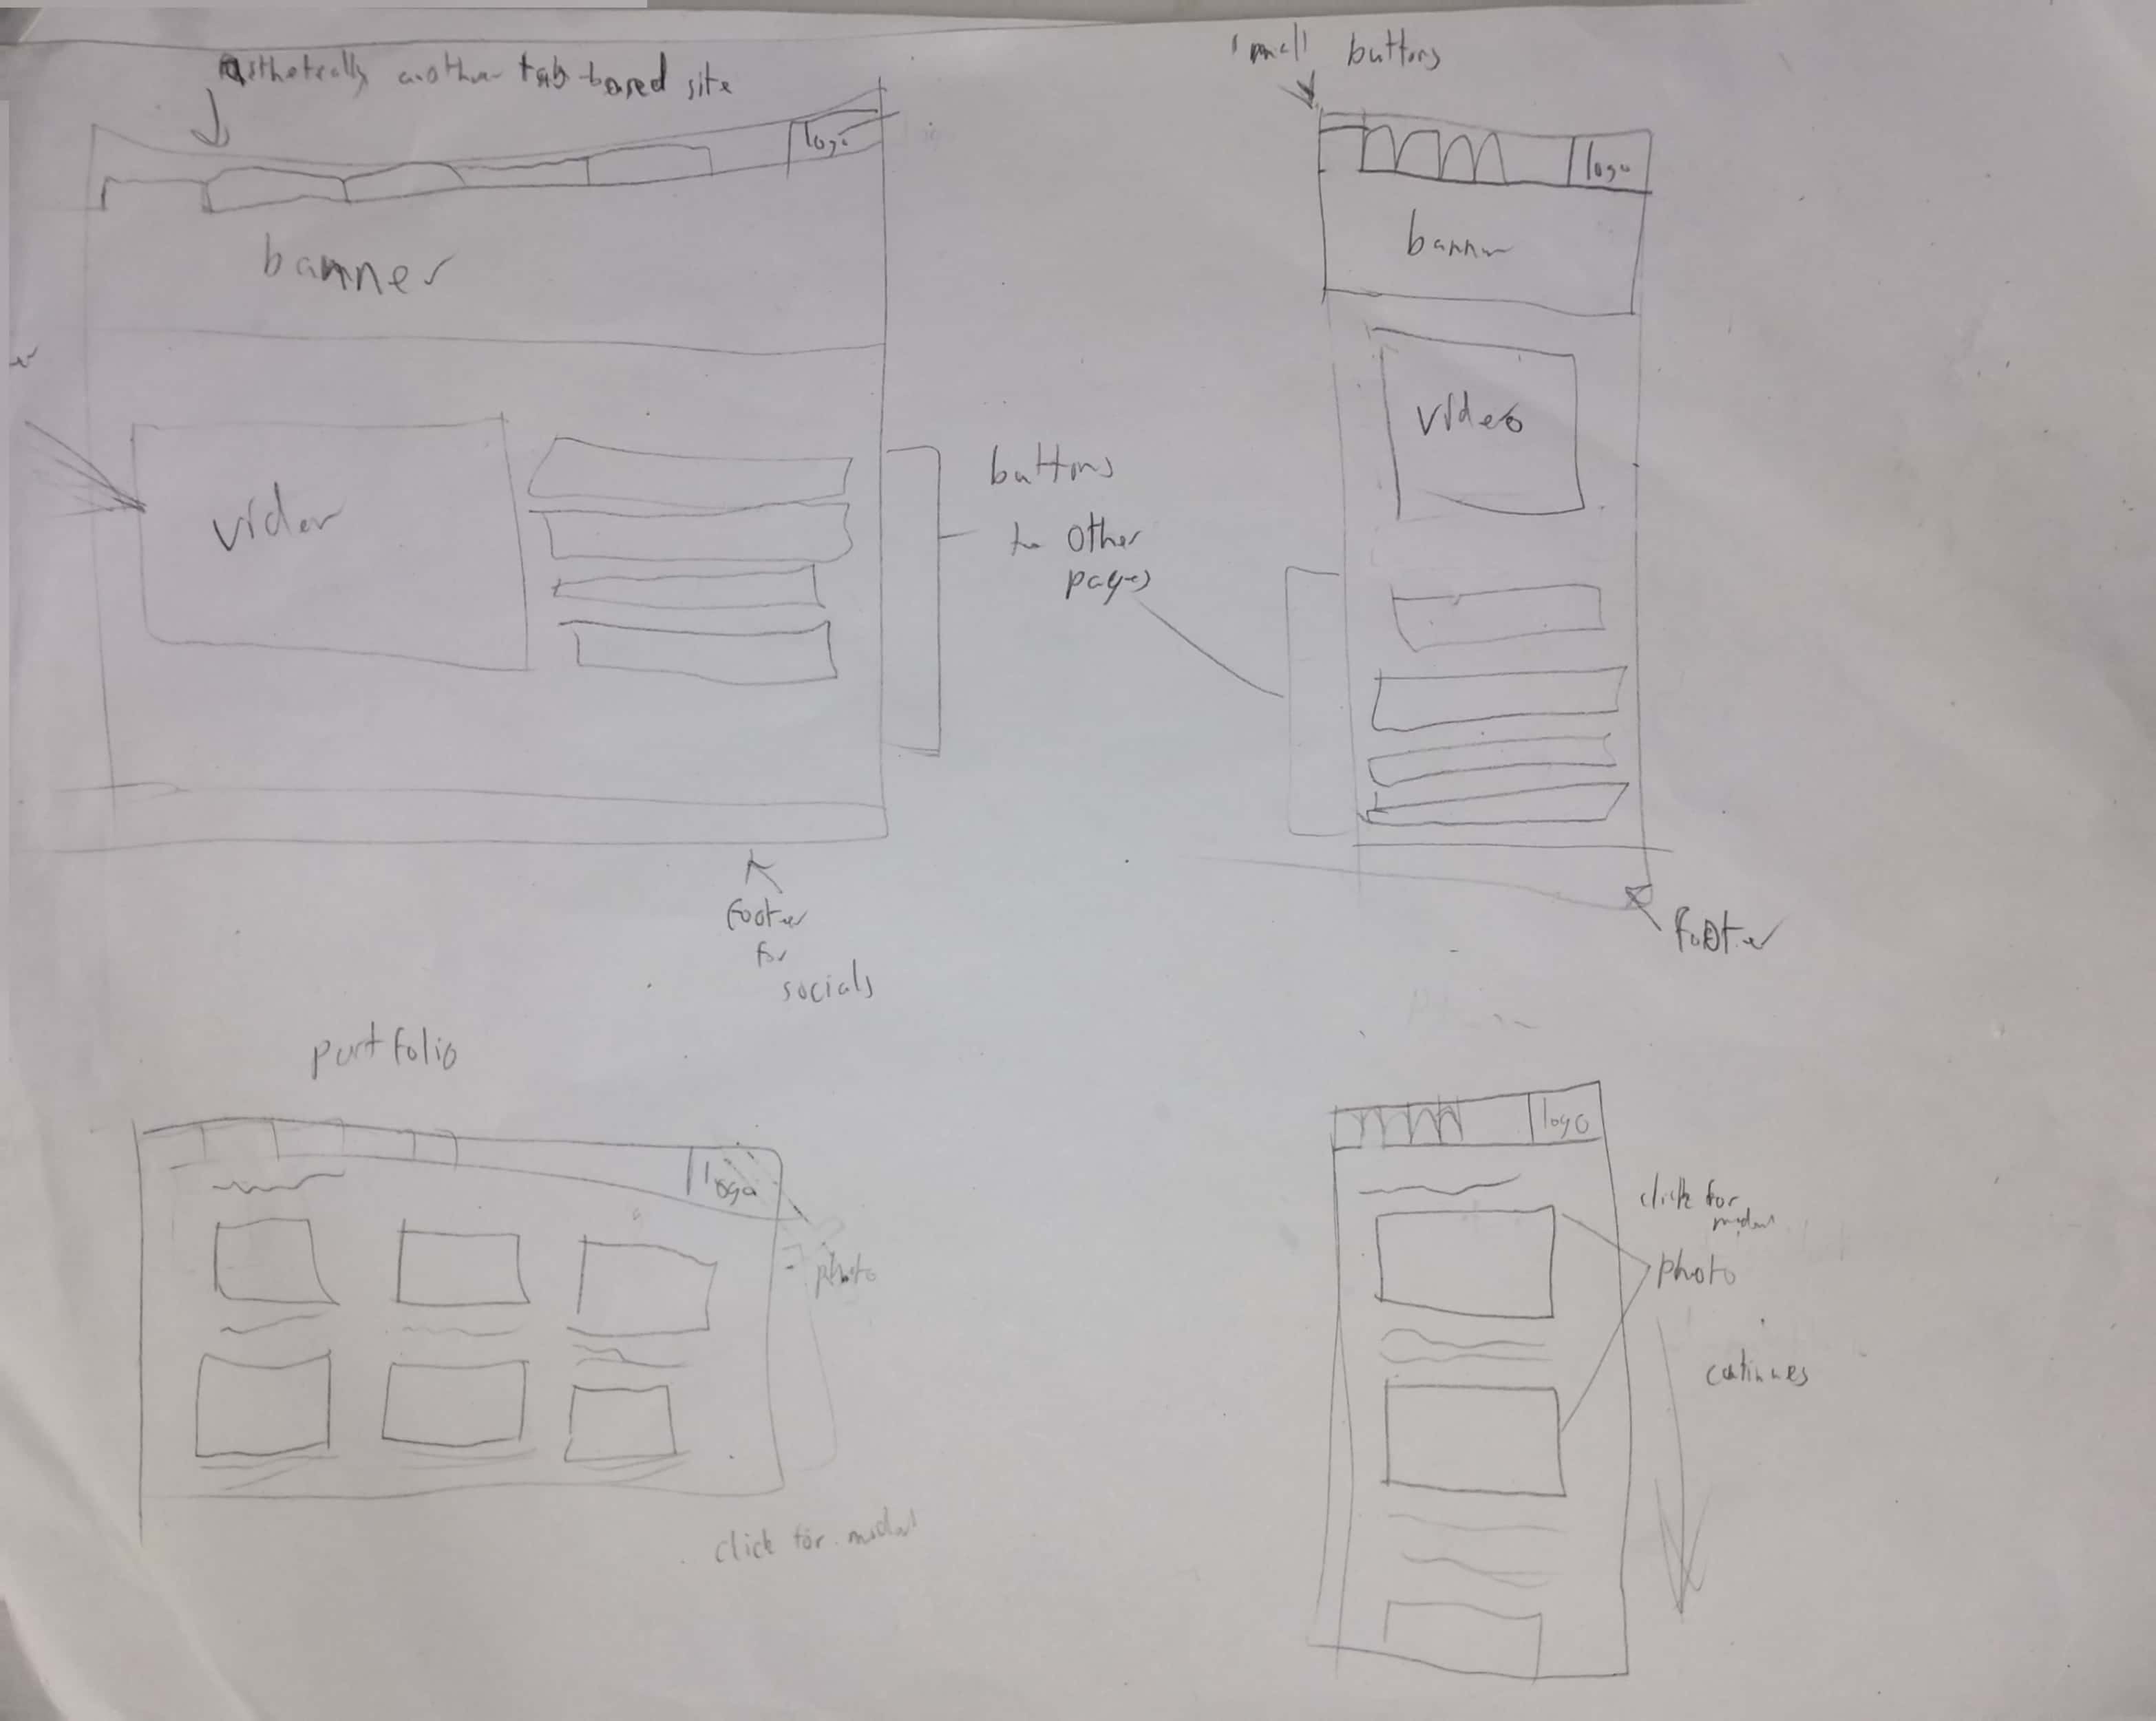 asthetically another tab-based site
logo
banner
video
buttons
to other
pages
footer
for
socials
small buttons
logo
banner
video
footer
portfolio
logo
photo
click for modal
logo
click for
modal
photo
continues